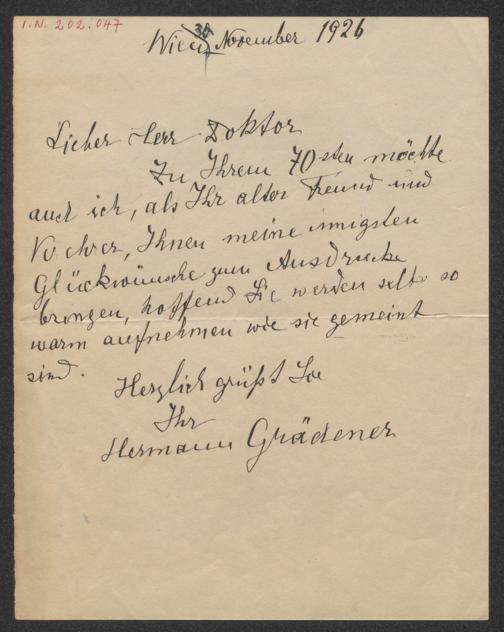 I.N. 202.047
Wien 30 November 1926
Lieber Herr Doktor
Zu Ihrem 70sten möchte
auch ich, als Ihr alter Freund und
Verehrer, Ihnen meine innigsten
Glückwünsche zum Ausdrucke
bringen, hoffend Sie werden selbe so
warm aufnehmen wie sie gemeint
sind.
Herzlich grüßt Sie
Ihr
Hermann Grädener